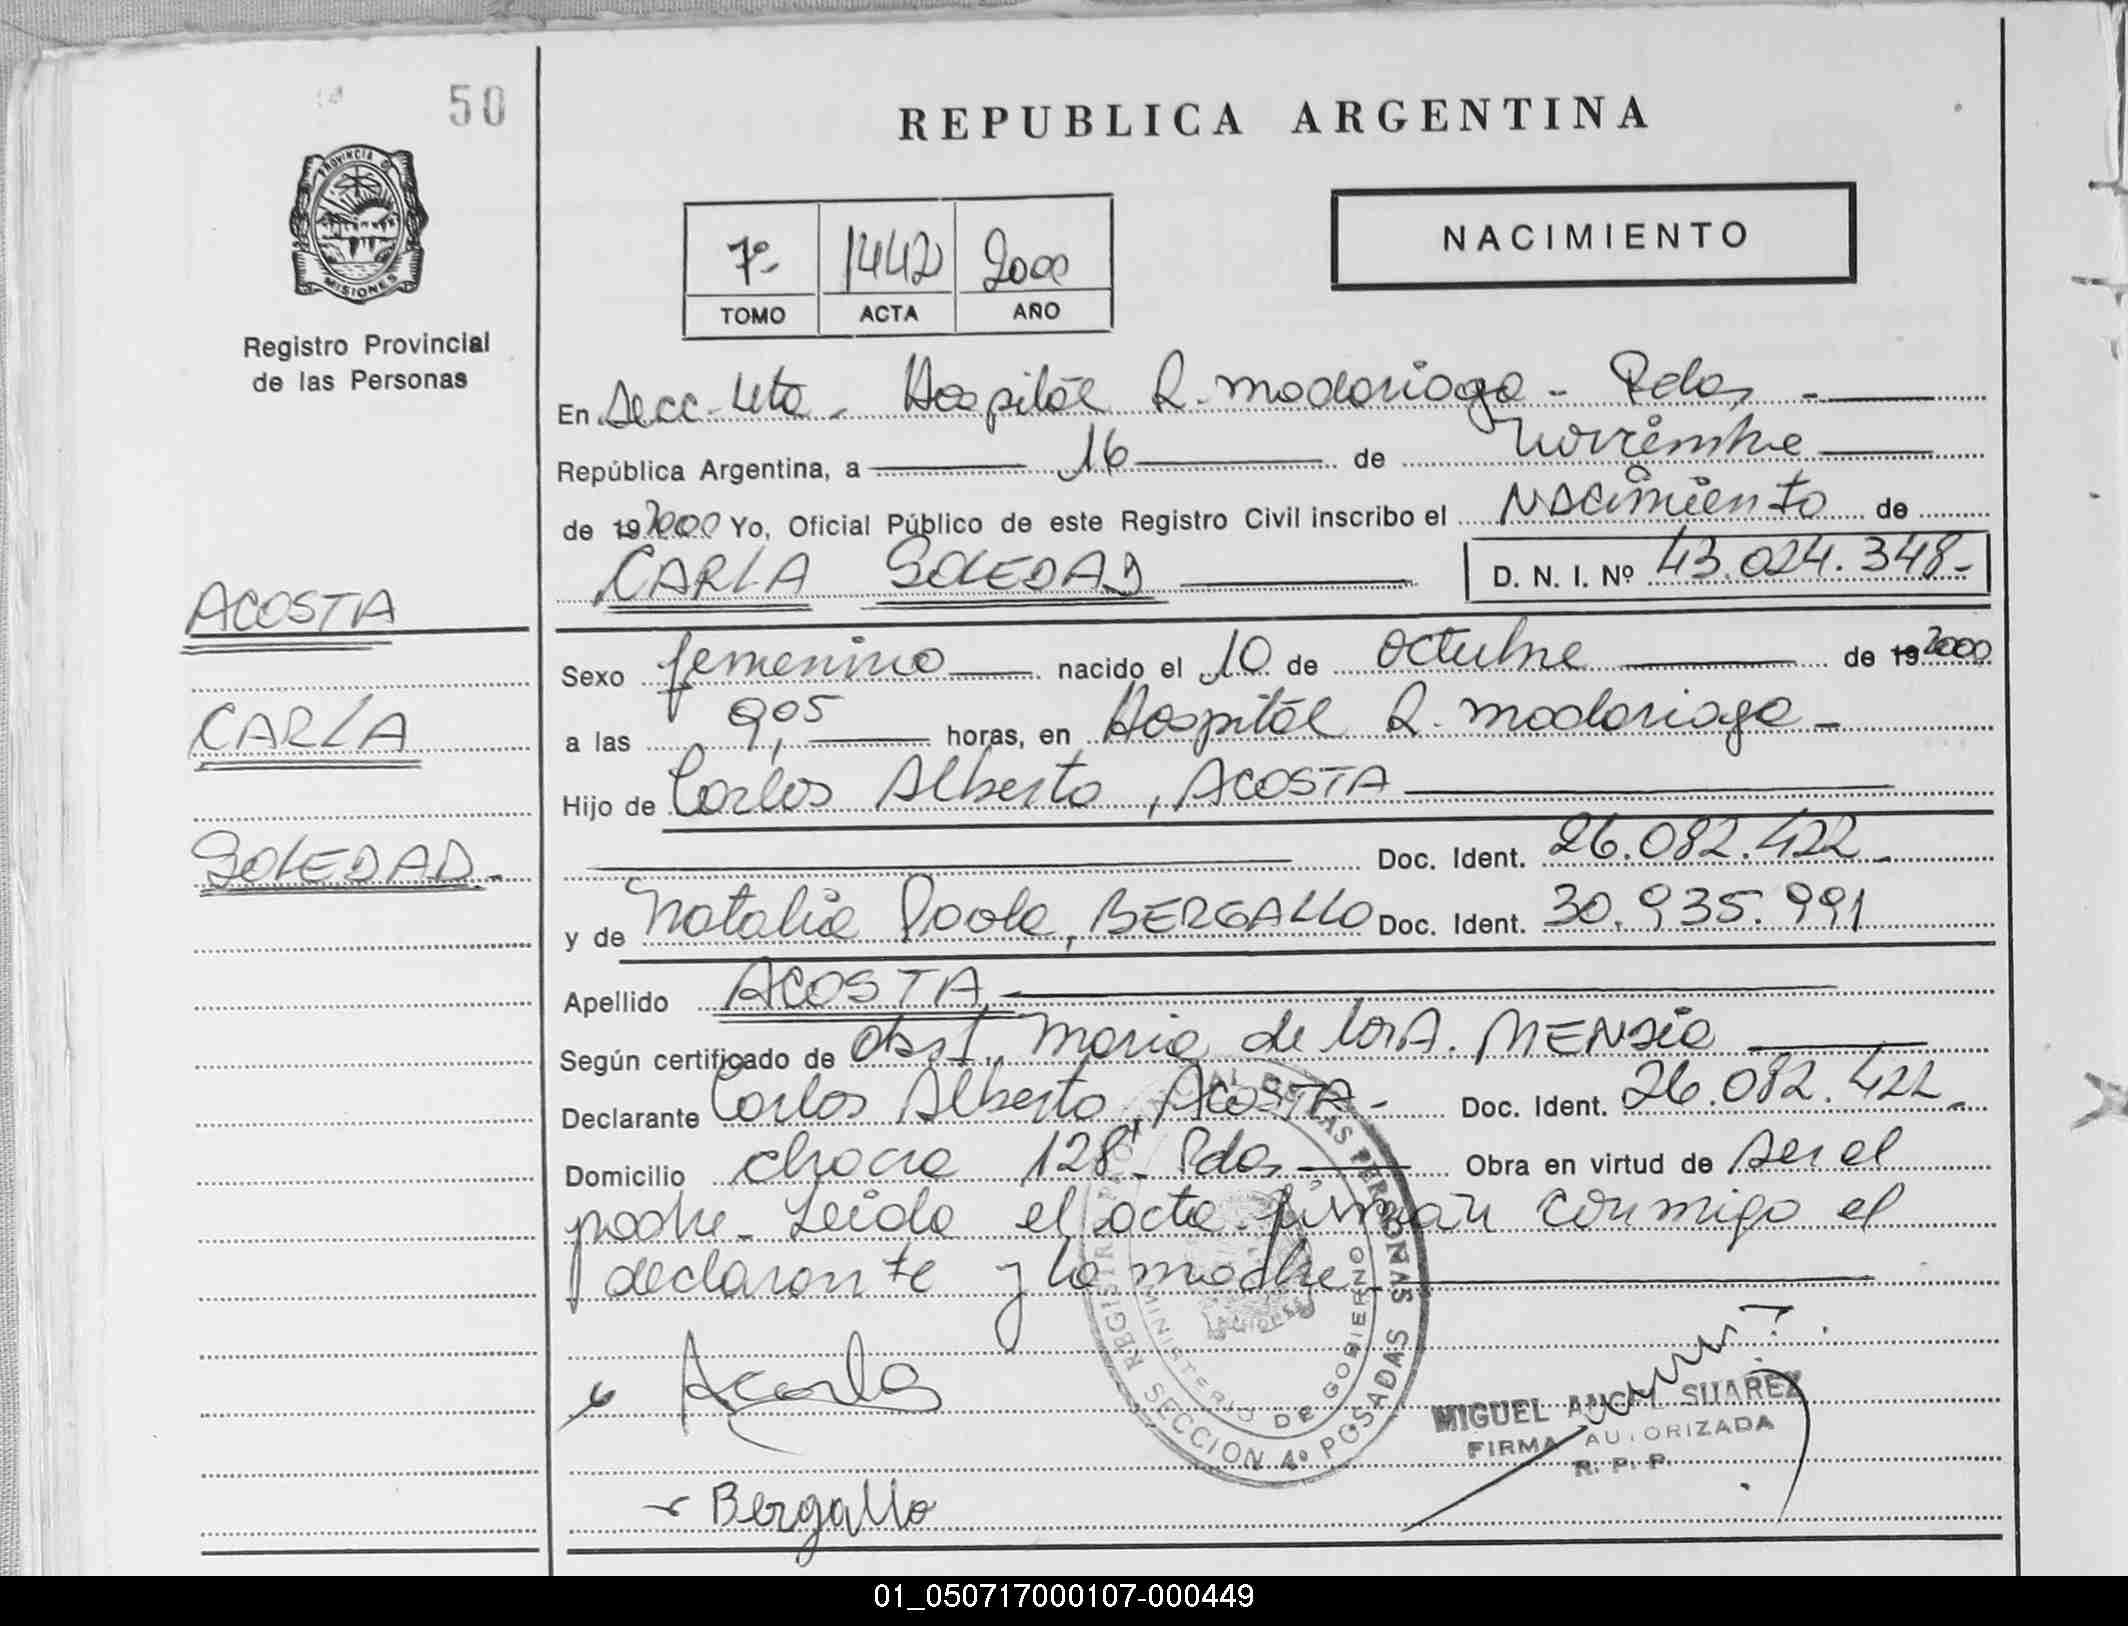 50
REPUBLICA ARGENTINA
PROVINCIA DE
MISIONES
Registro Provincial
de las Personas
7º- 1442 2000
TOMO ACTA AÑO
NACIMIENTO
En Secc. 4ta - Hospital R. Madariaga - Pdas -
República Argentina, a 16 de Noviembre
de 192000 Yo, Oficial Público de este Registro Civil inscribo el Nacimiento de
CARLA SOLEDAD D. N. I. Nº 43.024.348-
ACOSTA
CARLA
SOLEDAD-
Sexo femenino nacido el 10 de octubre de 192000
a las 9,05 horas, en Hospital R. Madariaga -
Hijo de Carlos Alberto, ACOSTA
Doc. Ident. 26.082.422-
y de Natalia Paola, BERGALLO Doc. Ident. 30.935.991
Apellido ACOSTA
Según certificado de obst. Maria de los A. MENSIO
Declarante Carlos Alberto, ACOSTA - Doc. Ident. 26.082.422-
Domicilio chacra 128 - Pdas Obra en virtud de ser el
padre - Leida el acta firman conmigo el
declarante y la madre.
REGISTRO PROVINCIAL DE LAS PERSONAS
MINISTERIO DE GOBIERNO
SECCION 4º POSADAS
MISIONES
Acosta
Bergallo
MIGUEL ANGEL SUAREZ
FIRMA AUTORIZADA
R. P. P.
01_050717000107-000449